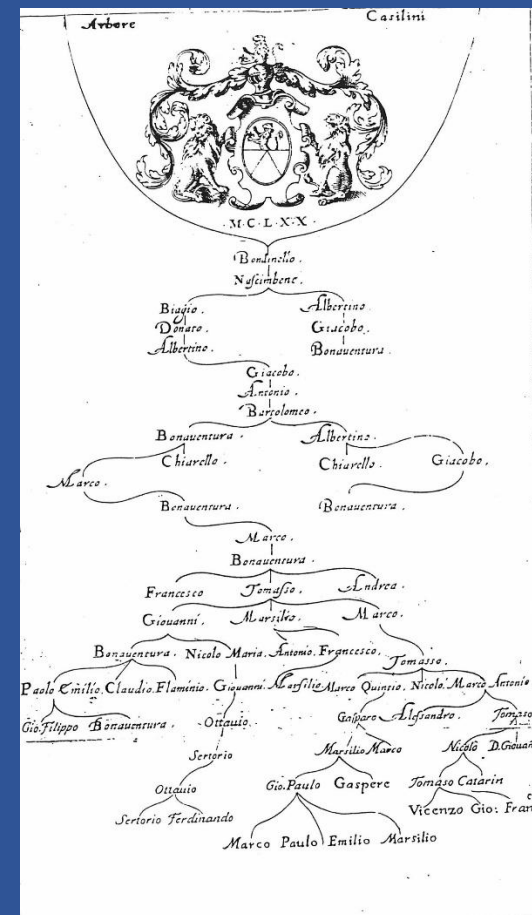 Arbore Casilini
·M·C·L·X·X·
Bondinello.
Nascimbene.
Biagio. Albertino.
Donato. Giacobo.
Albertino. Bonauentura.
Giacobo.
Antonio.
Bartolomeo.
Bonauentura. Albertino.
Chiarello. Chiarello. Giacobo.
Marco.
Bonauentura. Bonauentura.
Marco.
Bonauentura.
Francesco Tomasso. Andrea.
Giouanni. Marsilio. Marco.
Bonauentura. Nicolo Maria. Antonio. Francesco.
Tomasso.
Paolo Emilio. Claudio. Flaminio. Giouanni. Marsilio Marco Quintio. Nicolo. Marco Antonio
Gio. Filippo Bonauentura. Ottauio. Gasparo Alessandro. Tomaso
Sertorio Marsilio Marco Nicolò D. Giouan
Ottauio Gio. Paulo Gaspere Tomaso Catarin
Sertorio Ferdinando Vicenzo Gio: Fran
Marco Paulo Emilio Marsilio